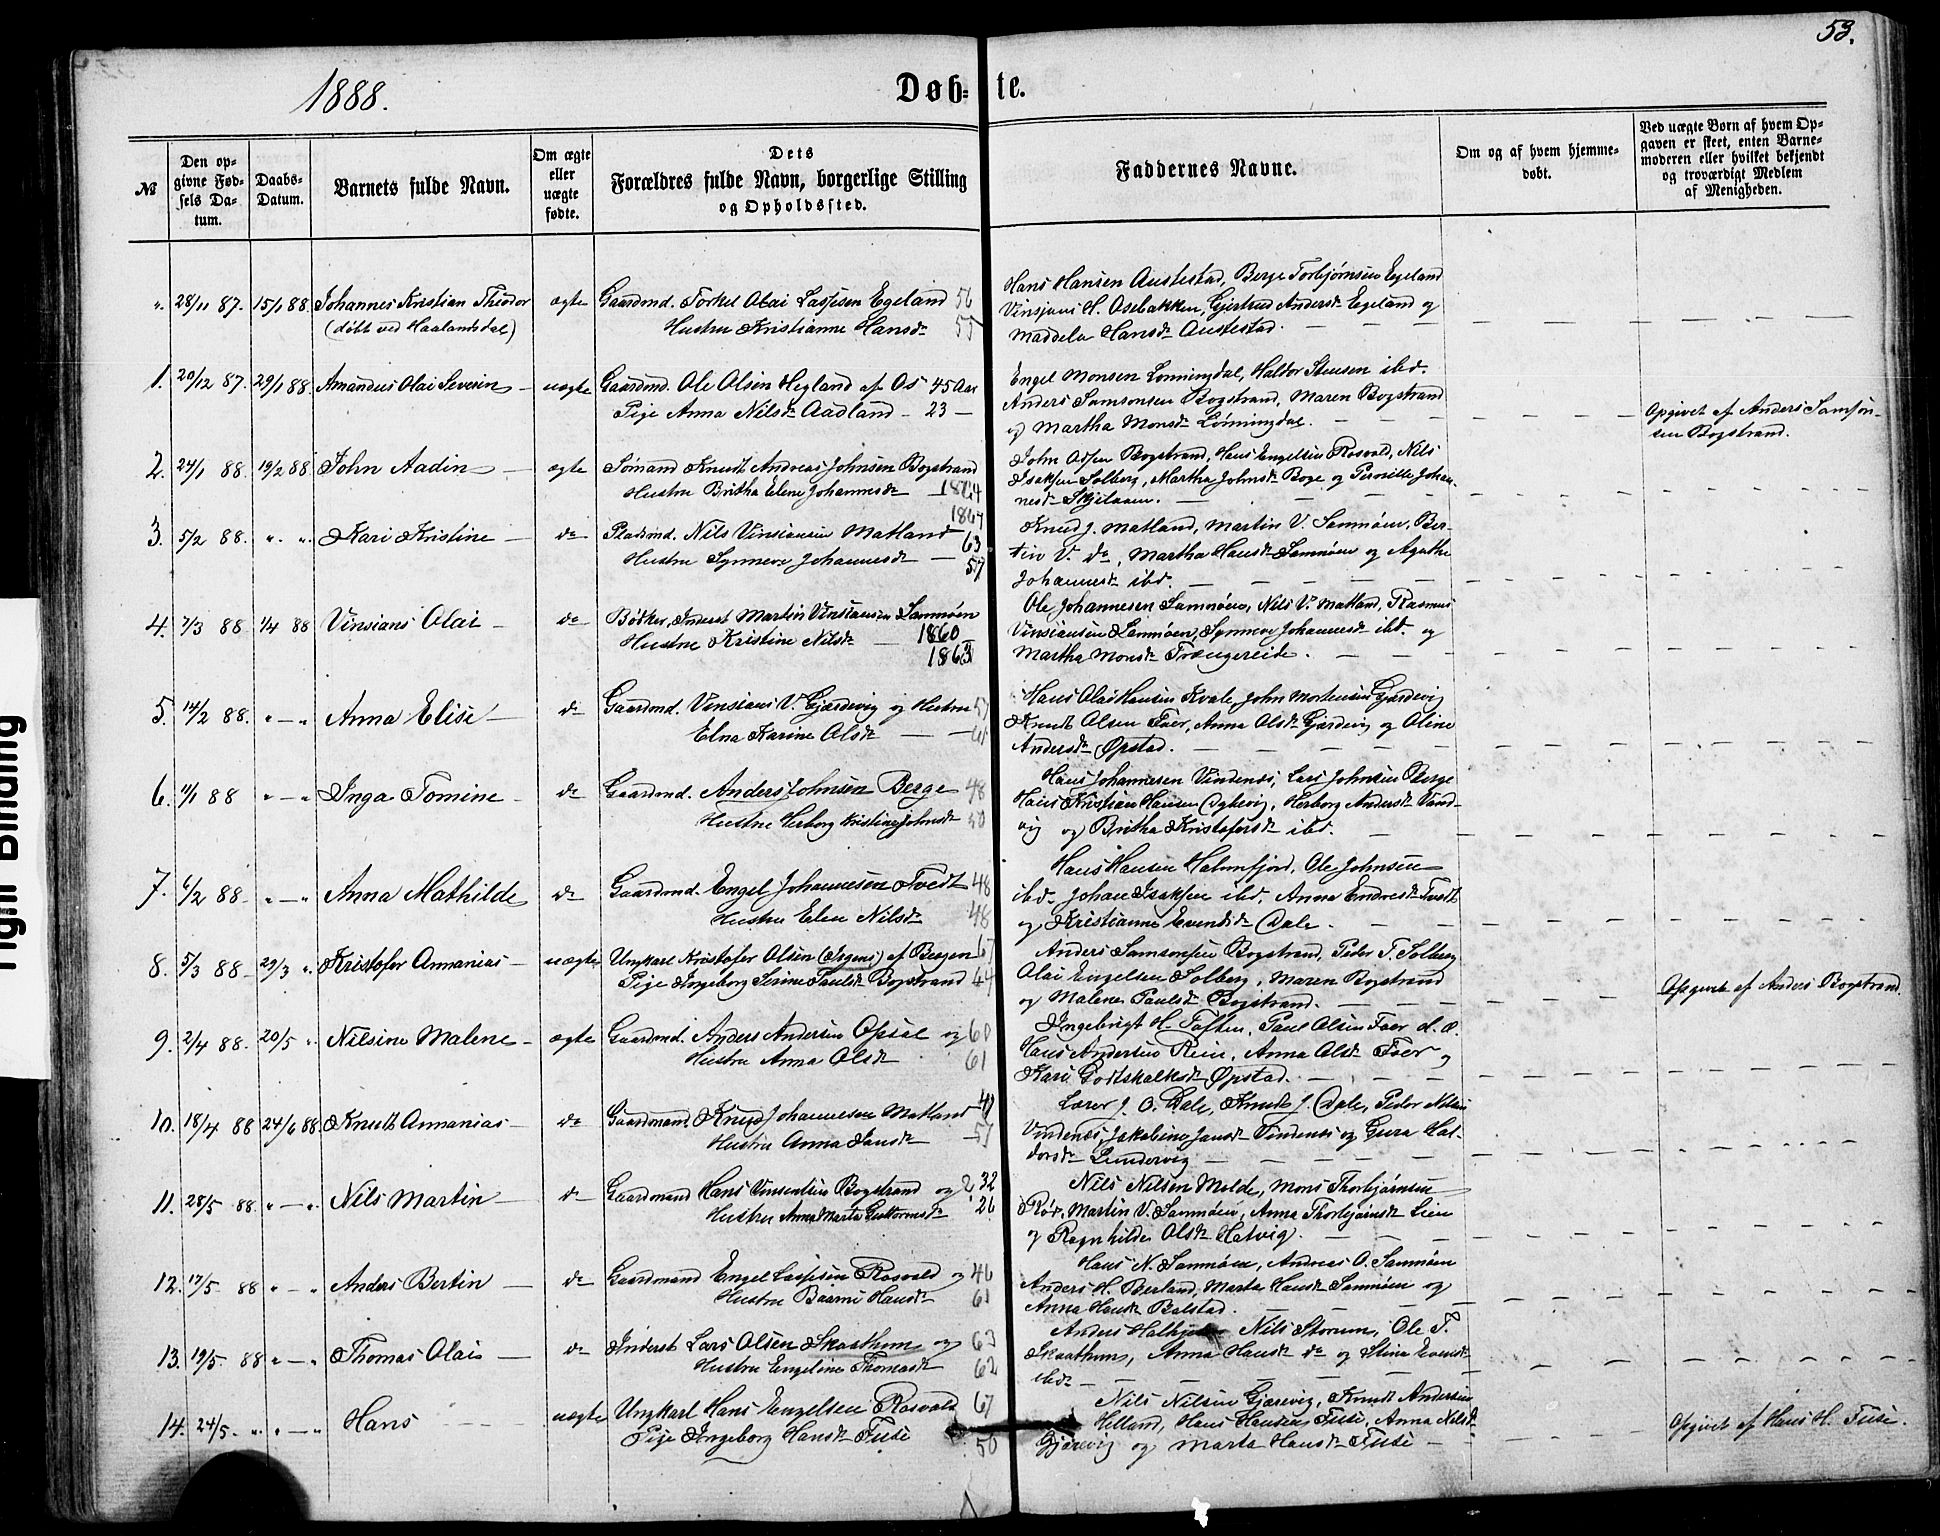 53.
1888.
Døb= te.
№
Den op-
givne Fød-
sels Da-
tum.
Daabs-
Datum.
Barnets fulde Navn.
Om ægte
eller
uægte
fødte.
Dets
Forældres fulde Navn, borgerlige Stilling
og Opholdssted.
Faddernes Navne.
Om og af hvem hjemme-
døbt.
Ved uægte Børn af hvem Op-
gaven er skeet, enten Barne-
moderen eller hvilket bekjendt
og troværdigt Medlem
af Menigheden.
". 28/11 87. 15/1 88. Johannes Kristian Theodor ægte Gaardmd. Torkel Olai Lassesen Egeland 56
(døbt ved Haalandsdal) Hustru Kristianne Hansdr 55
Hans Hansen Austestad, Berge Torbjørnsen Egeland
Vinsjans H. Osebakken, Gjertrud Andersdr Egeland og
Maddela Hansdr Austestad.
1. 20/12 87. 29/1 88. Amandus Olai Severin uægte Gaardmd. Ole Olsen Hegland af Os 45 Aar
Pige Anna Nilsdr Aadland - 23 -
Engel Monsen Lønningdal, Haldor Stensen ibd.
Anders Samsonsen Bogstrand, Maren Bogstrand
og Martha Monsdr Lønningdal.
Opgivet af Anders Samson-
sen Bogstrand.
2. 24/1 88. 19/2 88 John Aadin ægte Sømand Knut Andreas Johnsen Bogstrand
Hustru Britha Elene Johannesdr 1864
John Olsen Bogstrand, Hans Engelsen Rosvold, Nils
Isaksen Solberg, Martha Johnsdr Boge og Pernille Johan-
nesdr Skjelaaen.
3. 5/2 88. " " Kari Kristine dr Pladsmd. Nils Vinsiansen Matland 63
1867
Hustru Synneve Johannesdr 57
Knud J. Matland, Martin V. Samnøen, Ber-
tin V. do, Martha Hansdr Samnøen og Agathe
Johannesdr ibd.
4. 7/3 88 1/4 88 Vinsians Olai do Bødker, Inderst Martin Vinsiansen Samnøen
Hustru Kristine Nilsdr 1860
1863
Ole Johannesen Samnøen, Nils V. Matland, Rasmus
Vinsiansen Samnøen, Synneve Johannesdr ibd. og
Martha Monsdr Trængereide.
5. 14/2 88. " - " Anna Elise do Gaardmd. Vinsians V. Gjærdevig og Hustru 57
Elna Karine Olsdr 61
Hans Olai Hansen Kvale, John Mortensen Gjærdevig
Knud Olsen Foer, Anna Olsdr Gjærdevig og Oline
Andersdr Øpstad.
6. 11/1 88 " - " Inga Tomine do Gaardmd. Anders Johnsen Berge 48
Hustru Herborg Kristine Johnsdr 50
Hans Johannesen Vindenes, Lars Johnsen Berge
Hans Kristian Hansen Dybevig, Herborg Andersdr Vind-
vig og Britha Kristofersdr ibd.
7. 6/2 88 " - " Anna Mathilde do Gaardmd. Engel Johannesen Tvedt 48
Hustru Elen Nilsdr 48
Hans Hansen Holmefjord, Ole Johnsen
ibd. Johan Isaksen ibd, Anna Endresdr Tvedt
og Kristianne Evendsdr Dale.
8. 5/3 88 29/3 " Kristofer Annanias uægte Ungkarl Kristofer Olsen (Irgens) af Bergen 67
Pige Ingeborg Serine Paulsdr Bogstrand 64
Anders Samsonsen Bogstrand, Peder T. Solberg
Olai Engelsen Solberg, Maren Bogstrand
og Malene Paulsdr Bogstrand.
Opgivet af Anders Bogstrand.
9. 2/4 88. 20/5 " Nilsine Malene ægte Gaardmd. Anders Andersen Opsal og 60
Hustru Anna Olsdr 61
Ingebrigt H. Toften, Paul Olsen Foer d. æ.
Hans Andersen Rein, Anna Olsdr Foer og
Kari Godtskalksdr Øpstad.
10. 18/4 88 24/6 88 Knut Annanias do Gaardmand Knud Johannesen Matland 49
Hustru Anna Jansdr 51
Lærer J. O. Dale, Knud J. Dale, Peder Nilsen
Vindenes, Jakobine Jansdr Vindenes og Gura Hal-
dorsdr Lundervig
11. 28/5 88. " - " Nils Martin do Gaardmand Hans Vinsentsen Bogstrand og 32
Hustru Anna Marta Guttormsdr 26
Nils Nilsen Melde, Mons Thorbjørnsen
Rød, Martin V. Samnøen, Anna Thorbjørnsdr Lien
og Ragnhilde Olsdr Hatvig.
12. 17/5 88 " - " Anders Bertin do Gaardmand Engel Lassesen Rosvold og 46
Hustru Baarni Hansdr 61
Hans N. Samnøen, Andreas O. Samnøen
Anders H. Berland, Marta Hansdr Samnøen og
Anna Hansdr Bolstad.
13. 19/5 88 " - " Thomas Olai do Inderst Lars Olsen Skaathun og 63
Hustru Engeline Thomasdr 62
Anders Nils Storum, Ole T.
Skaathun, Anna Hansdr do og Stina Evensdr
ibd.
14. 24/5 " " - " Hans uægte Ungkarl Hans Engelsen Rosvold 67
Pige Ingeborg Hansdr Fuse 50
Nils Nilsen Gjærevig, Knud Andersen
Helland, Hans Hansen Fuse, Anna Nilsdr
Gjærevig og Marta Hansdr Fuse
Opgivet af Hans H. Fuse.